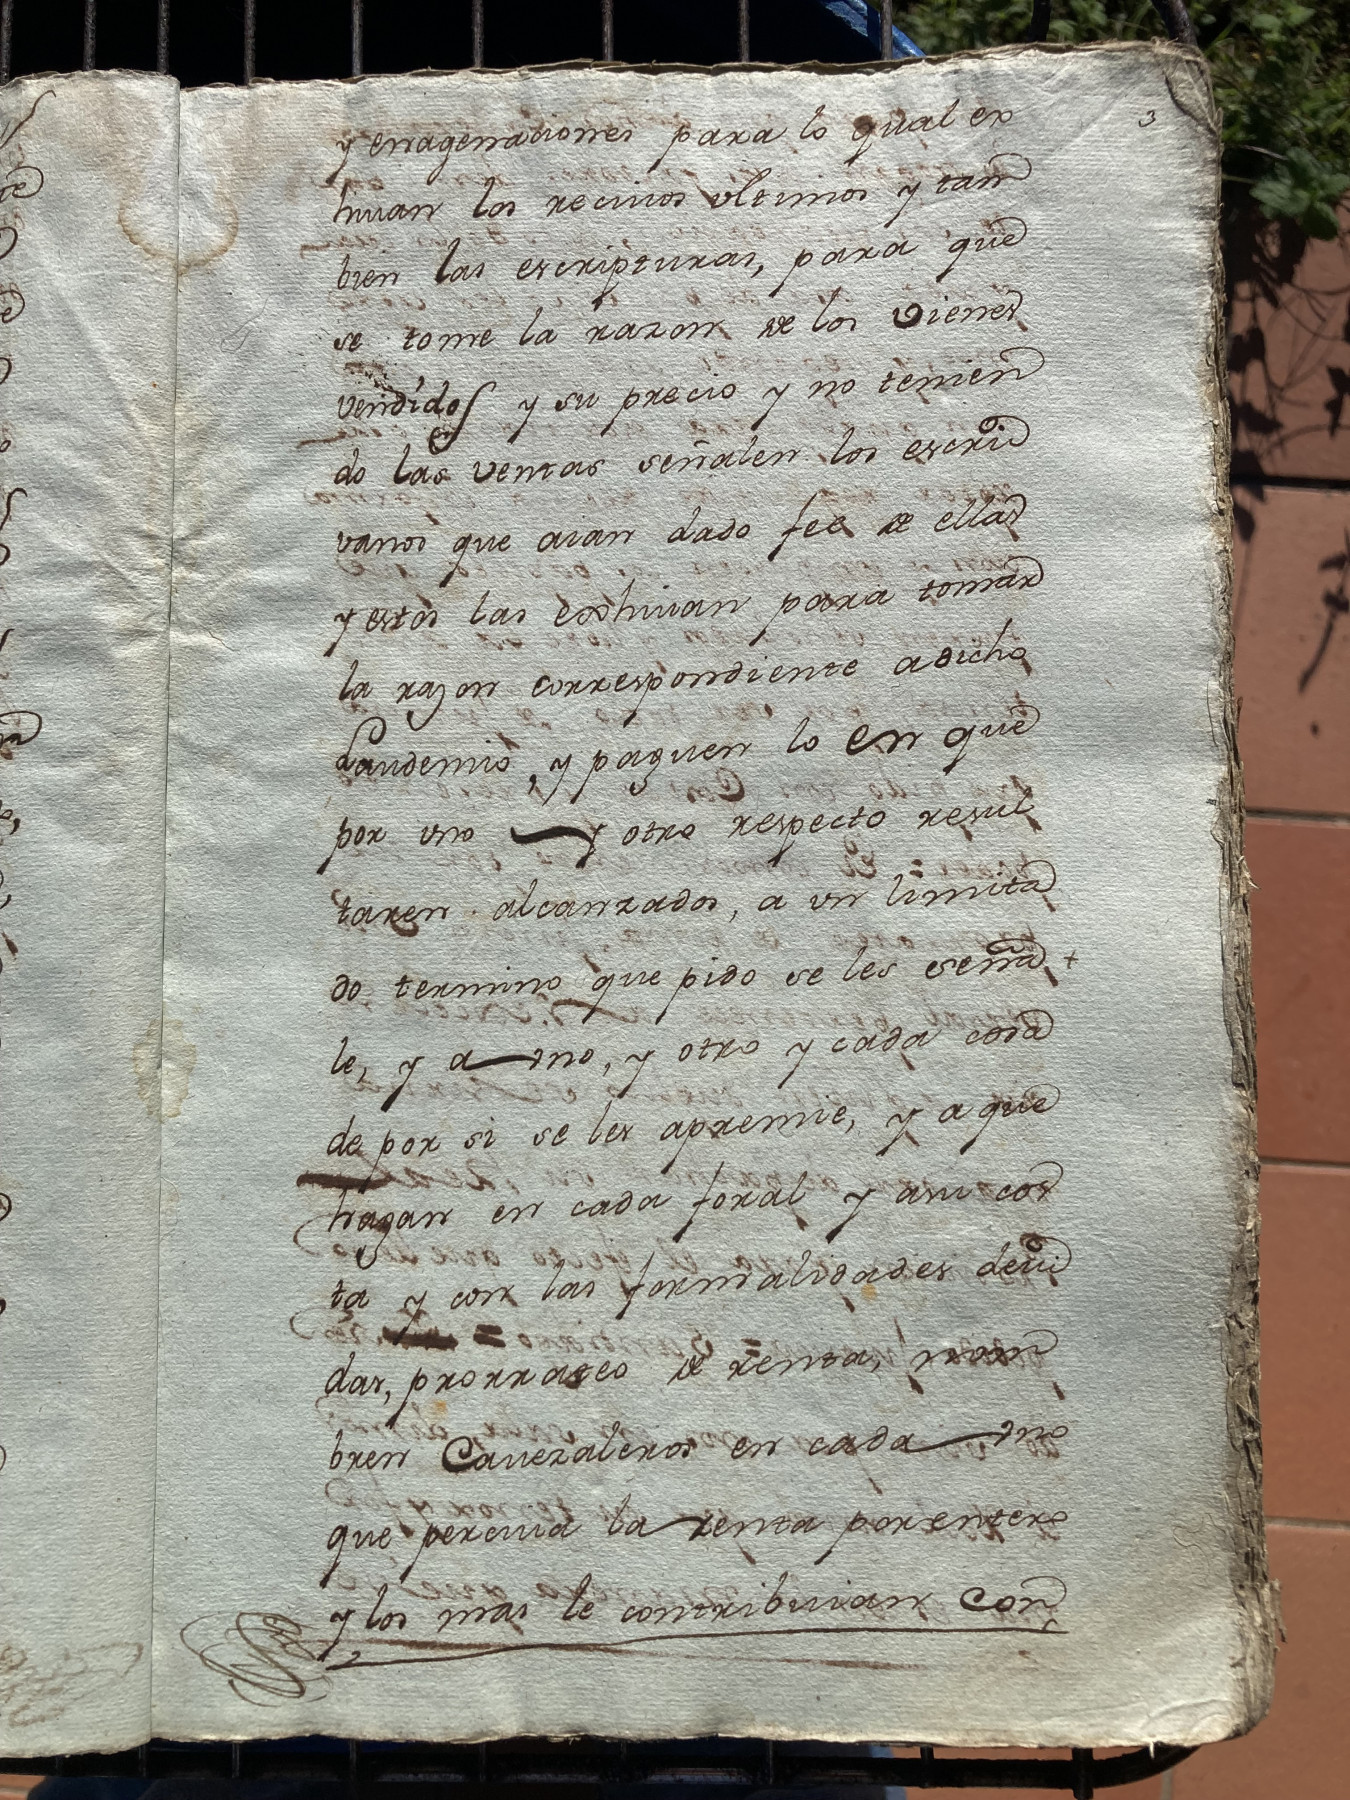 3
y enagenaciones para lo qual ex
hivan los recivos ultimos y tam
bien las escripturas, para que
se tome la razon de los Vienes
vendidos y su precio y no tenien
do las ventas señalen los escri
vanos que aian dado fee de ellas
y estos las exhivan para tomar
la razon correspondiente a dicho
Laudemio, y paguen lo en que
por uno y otro respecto resul
taren alcanzados, a un limita
do termino que pido se les seña
le, y a uno, y otro y cada cosa
de por si se les apremie, y a que
hagan en cada foral y a su cos
ta y con las formalidades devi
das, prorrateo de renta, nom
bren Cavezaleros en cada uno
que perciva la renta por entero
y los mas le contribuian Con